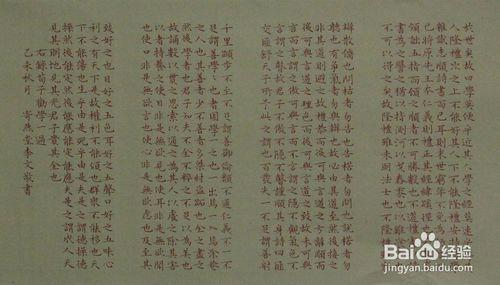 於世矣故曰學莫便乎近其人學之經莫速乎好其
人隆禮次之上不能好其人下不能隆禮安特將學
雜識志順詩書而已耳則末世窮年不免為陋儒而
已將原先王本仁義則禮正其經緯蹊徑也若挈裘
領詘五指而頓之順者不可勝數也不道禮憲以詩
書為之譬之猶以指測河也以戈舂黍也以錐
不可以得之矣故隆禮雖未明法士也不隆禮
辯散儒也問楛者勿告也告楛者勿問也說楛者勿
聽也有爭氣者勿與辯也故必由其道至然後接之
非其道則避之故禮恭而後可與言道之方辭順而
後可與言道之理色從而後可與言道之致故未可與
言而言謂之傲可與言而不言謂之隱不觀氣色而
言謂之瞽故君子不傲不隱不瞽謹順其身詩曰匪
交匪舒天子所予此之謂也百發失一不足謂善射
千里蹞步不至不足謂善御倫類不通仁義不一不
足謂善學學也者固學一之也一出焉一入焉涂巷
之人也其善者少不善者多桀紂盜跖也全之盡之
然後學者也君子知夫不全不粹之不足以為美也
故誦數以貫之思索以通之為其人以處之除其害
以者持養之使目非是無欲見也使耳非是無欲聞
也使口非是無欲言也使心非是無欲慮也及至其
致好之也目好之五色耳好之五聲口好之五味心
利之有天下是故權利不能傾也群眾不能移也天
下不能蕩也生乎由是死乎由是夫是之謂德操德
操然後能定能定然後能應能定能應夫是之謂成人天
見其明地見其光君子貴其全也
右錄荀子勸學一過
己未秋月 寄燕堂李文敬書
Baidu经验
jingyan.baidu.com